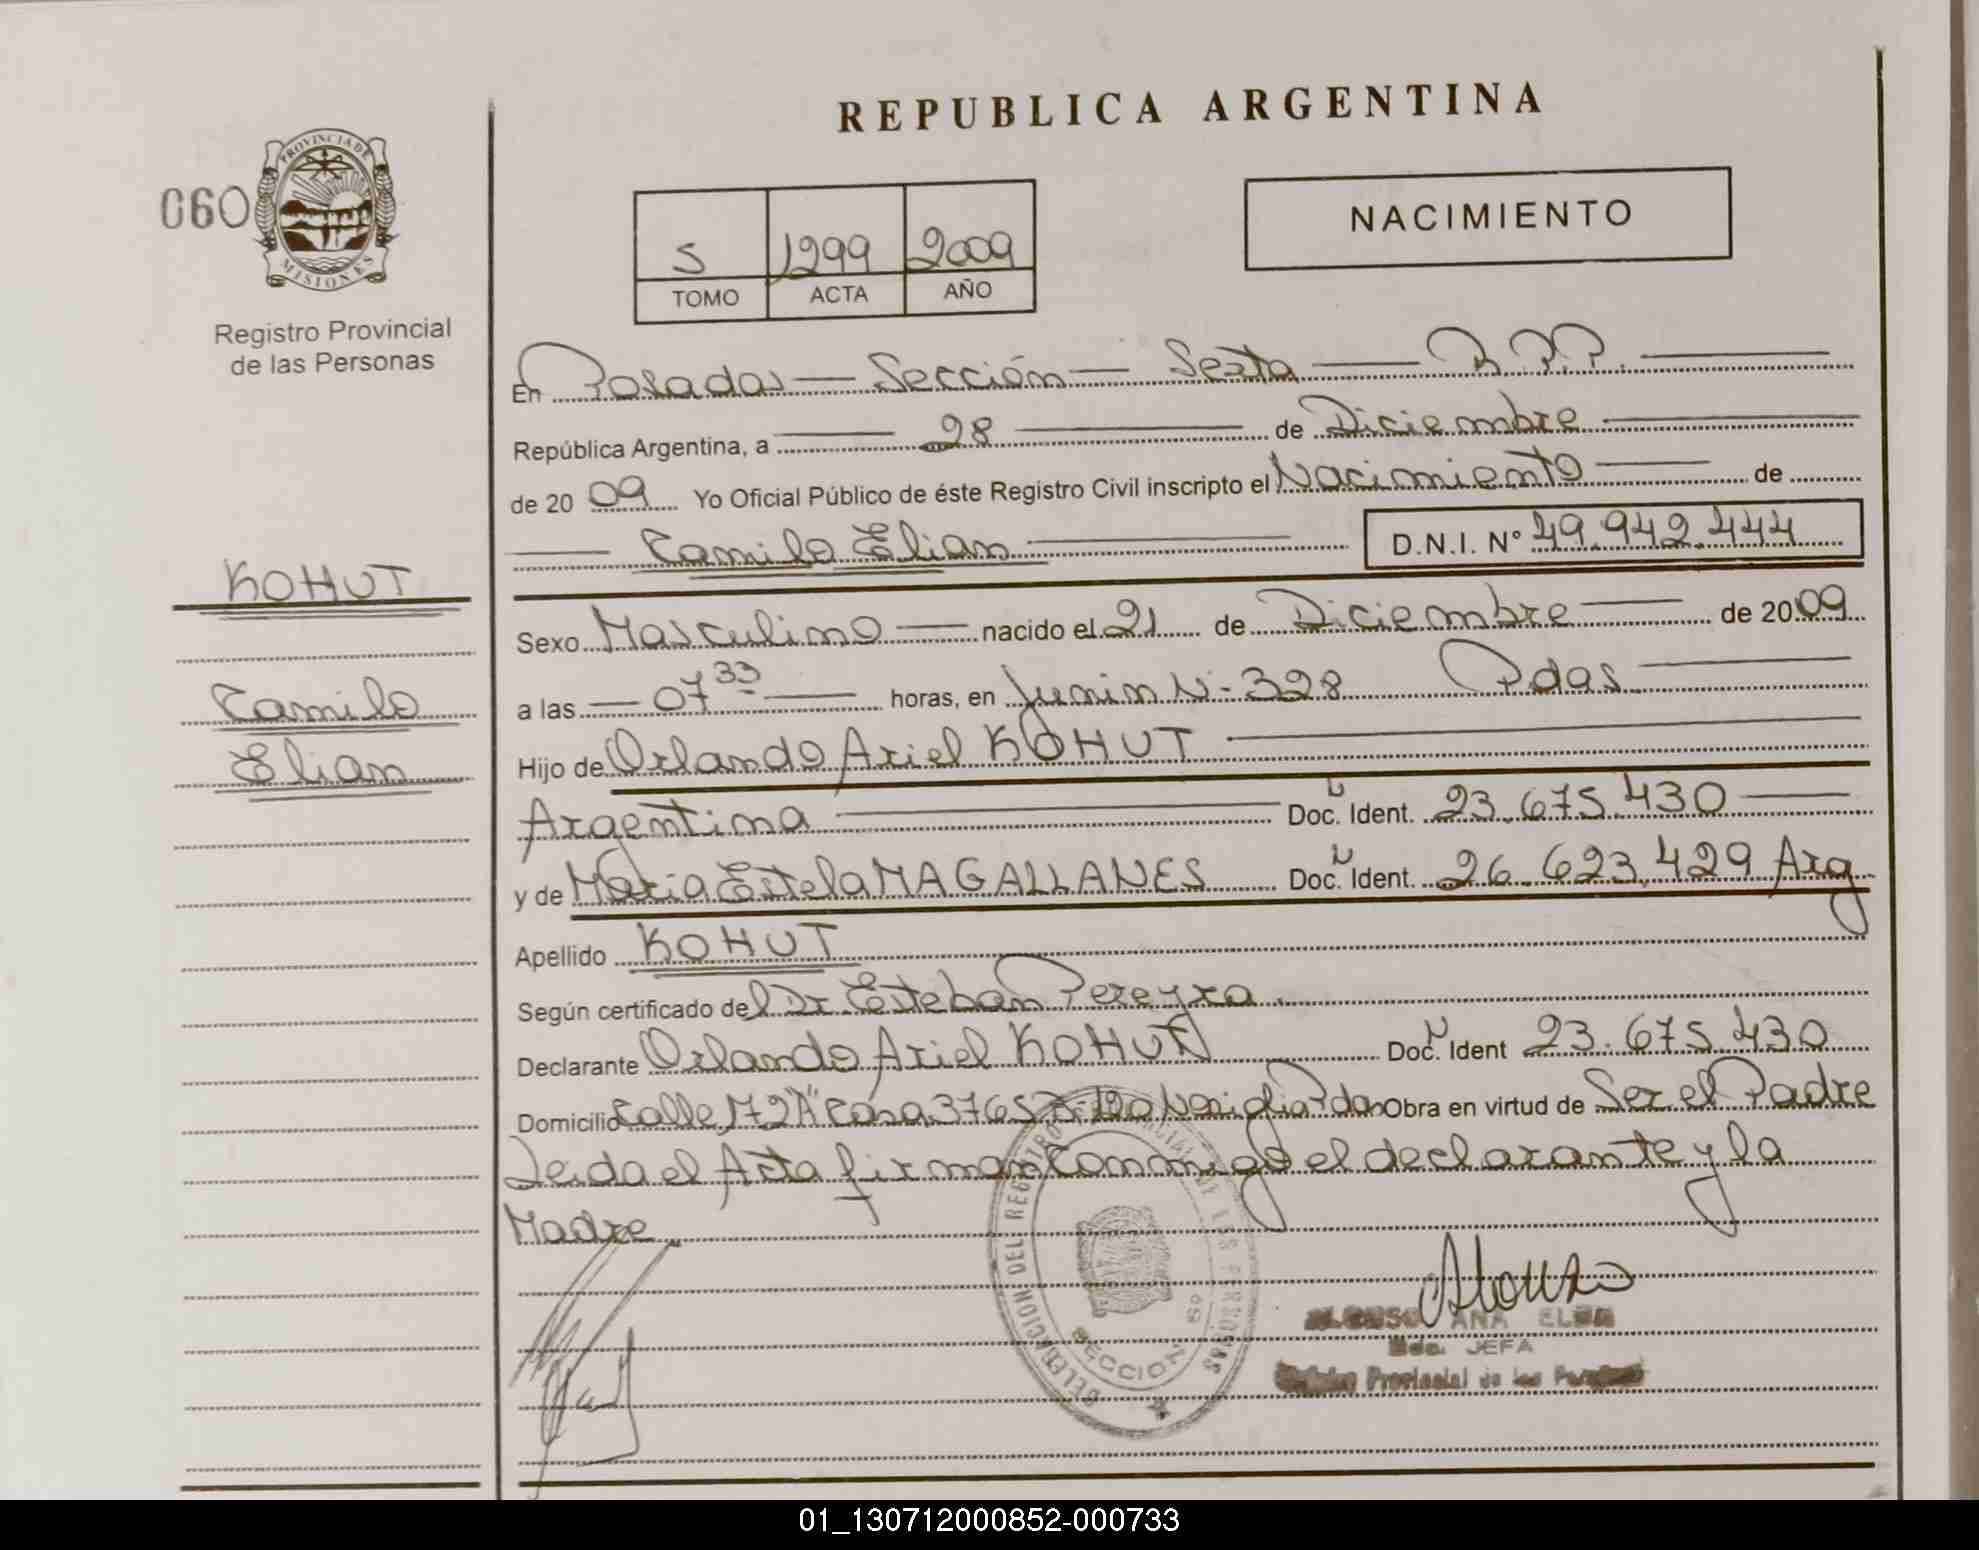 REPUBLICA ARGENTINA
060
PROVINCIA DE
MISIONES
Registro Provincial
de las Personas
5 1299 2009
TOMO ACTA AÑO
NACIMIENTO
KOHUT
Camilo
Elian
En Posadas — Sección — Sexta — R.P.P.
República Argentina, a 28 de Diciembre
de 2009 Yo Oficial Público de éste Registro Civil inscripto el Nacimiento de
Camilo Elian D.N.I. N° 49.942.444
Sexo Masculino nacido el 21 de Diciembre de 2009
a las 07 33 horas, en Junin N- 328 Pdas
Hijo de Orlando Ariel KOHUT
Argentina Doc. Ident. 23.675.430
y de Maria Estela MAGALLANES Doc. Ident. 26.623.429 Arg
Apellido KOHUT
Según certificado del Dr. Esteban Pereyra.
Declarante Orlando Ariel KOHUT Doc. Ident 23.675.430
Domicilio Calle 172"A" Casa 3765 Pdas Obra en virtud de Ser el Padre
Leida el Acta firman Conmigo el declarante y la
Madre
DELEGACION DEL REGISTRO PROVINCIAL DE LAS PERSONAS
SECCION 6º
ALONSO ANA ELSA
JEFA
Provincial de las Personas
01_130712000852-000733